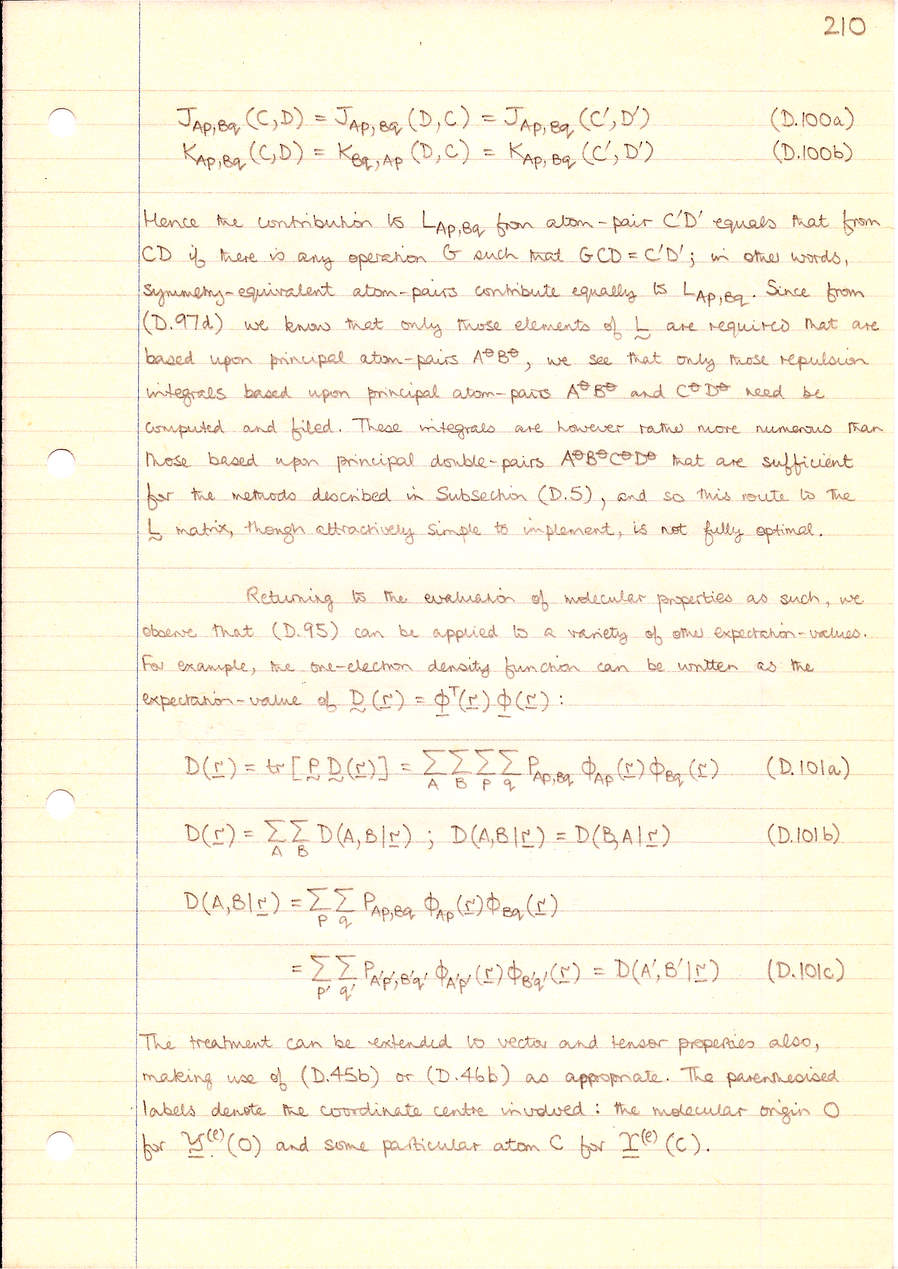 210
J_Ap,Bq (C,D) = J_Ap,Bq (D,C) = J_Ap,Bq (C′,D′) (D.100a)
K_Ap,Bq (C,D) = K_Bq,Ap (D,C) = K_Ap,Bq (C′,D′) (D.100b)
Hence the contribution to L_Ap,Bq from atom-pair C′D′ equals that from
CD if there is any operation G such that GCD = C′D′; in other words,
symmetry-equivalent atom-pairs contribute equally to L_Ap,Bq. Since from
(D.97d) we know that only those elements of L̰ are required that are
based upon principal atom-pairs A^⊖B^⊖, we see that only those repulsion
integrals based upon principal atom-pairs A^⊖B^⊖ and C^⊖D^⊖ need be
computed and filed. These integrals are however rather more numerous than
those based upon principal double-pairs A^⊖B^⊖C^⊖D^⊖ that are sufficient
for the methods described in Subsection (D.5), and so this route to the
L̰ matrix, though attractively simple to implement, is not fully optimal.
Returning to the evaluation of molecular properties as such, we
observe that (D.95) can be applied to a variety of other expectation-values.
For example, the one-electron density function can be written as the
expectation-value of D̰(r̲) = ϕ̲^T(r̲) ϕ̲(r̲) :
D(r̲) = tr [P̰ D̰(r̲)] = Σ_A Σ_B Σ_p Σ_q P_Ap,Bq ϕ_Ap (r̲) ϕ_Bq (r̲) (D.101a)
D(r̲) = Σ_A Σ_B D(A,B|r̲) ; D(A,B|r̲) = D(B,A|r̲) (D.101b)
D(A,B|r̲) = Σ_p Σ_q P_Ap,Bq ϕ_Ap (r̲) ϕ_Bq (r̲)
= Σ_p′ Σ_q′ P_A′p′,B′q′ ϕ_A′p′ (r̲) ϕ_B′q′ (r̲) = D(A′,B′|r̲) (D.101c)
The treatment can be extended to vector and tensor properties also,
making use of (D.45b) or (D.46b) as appropriate. The parenthesised
labels denote the coordinate centre involved : the molecular origin O
for Y̲^(e)(O) and some particular atom C for X̲^(e)(C).